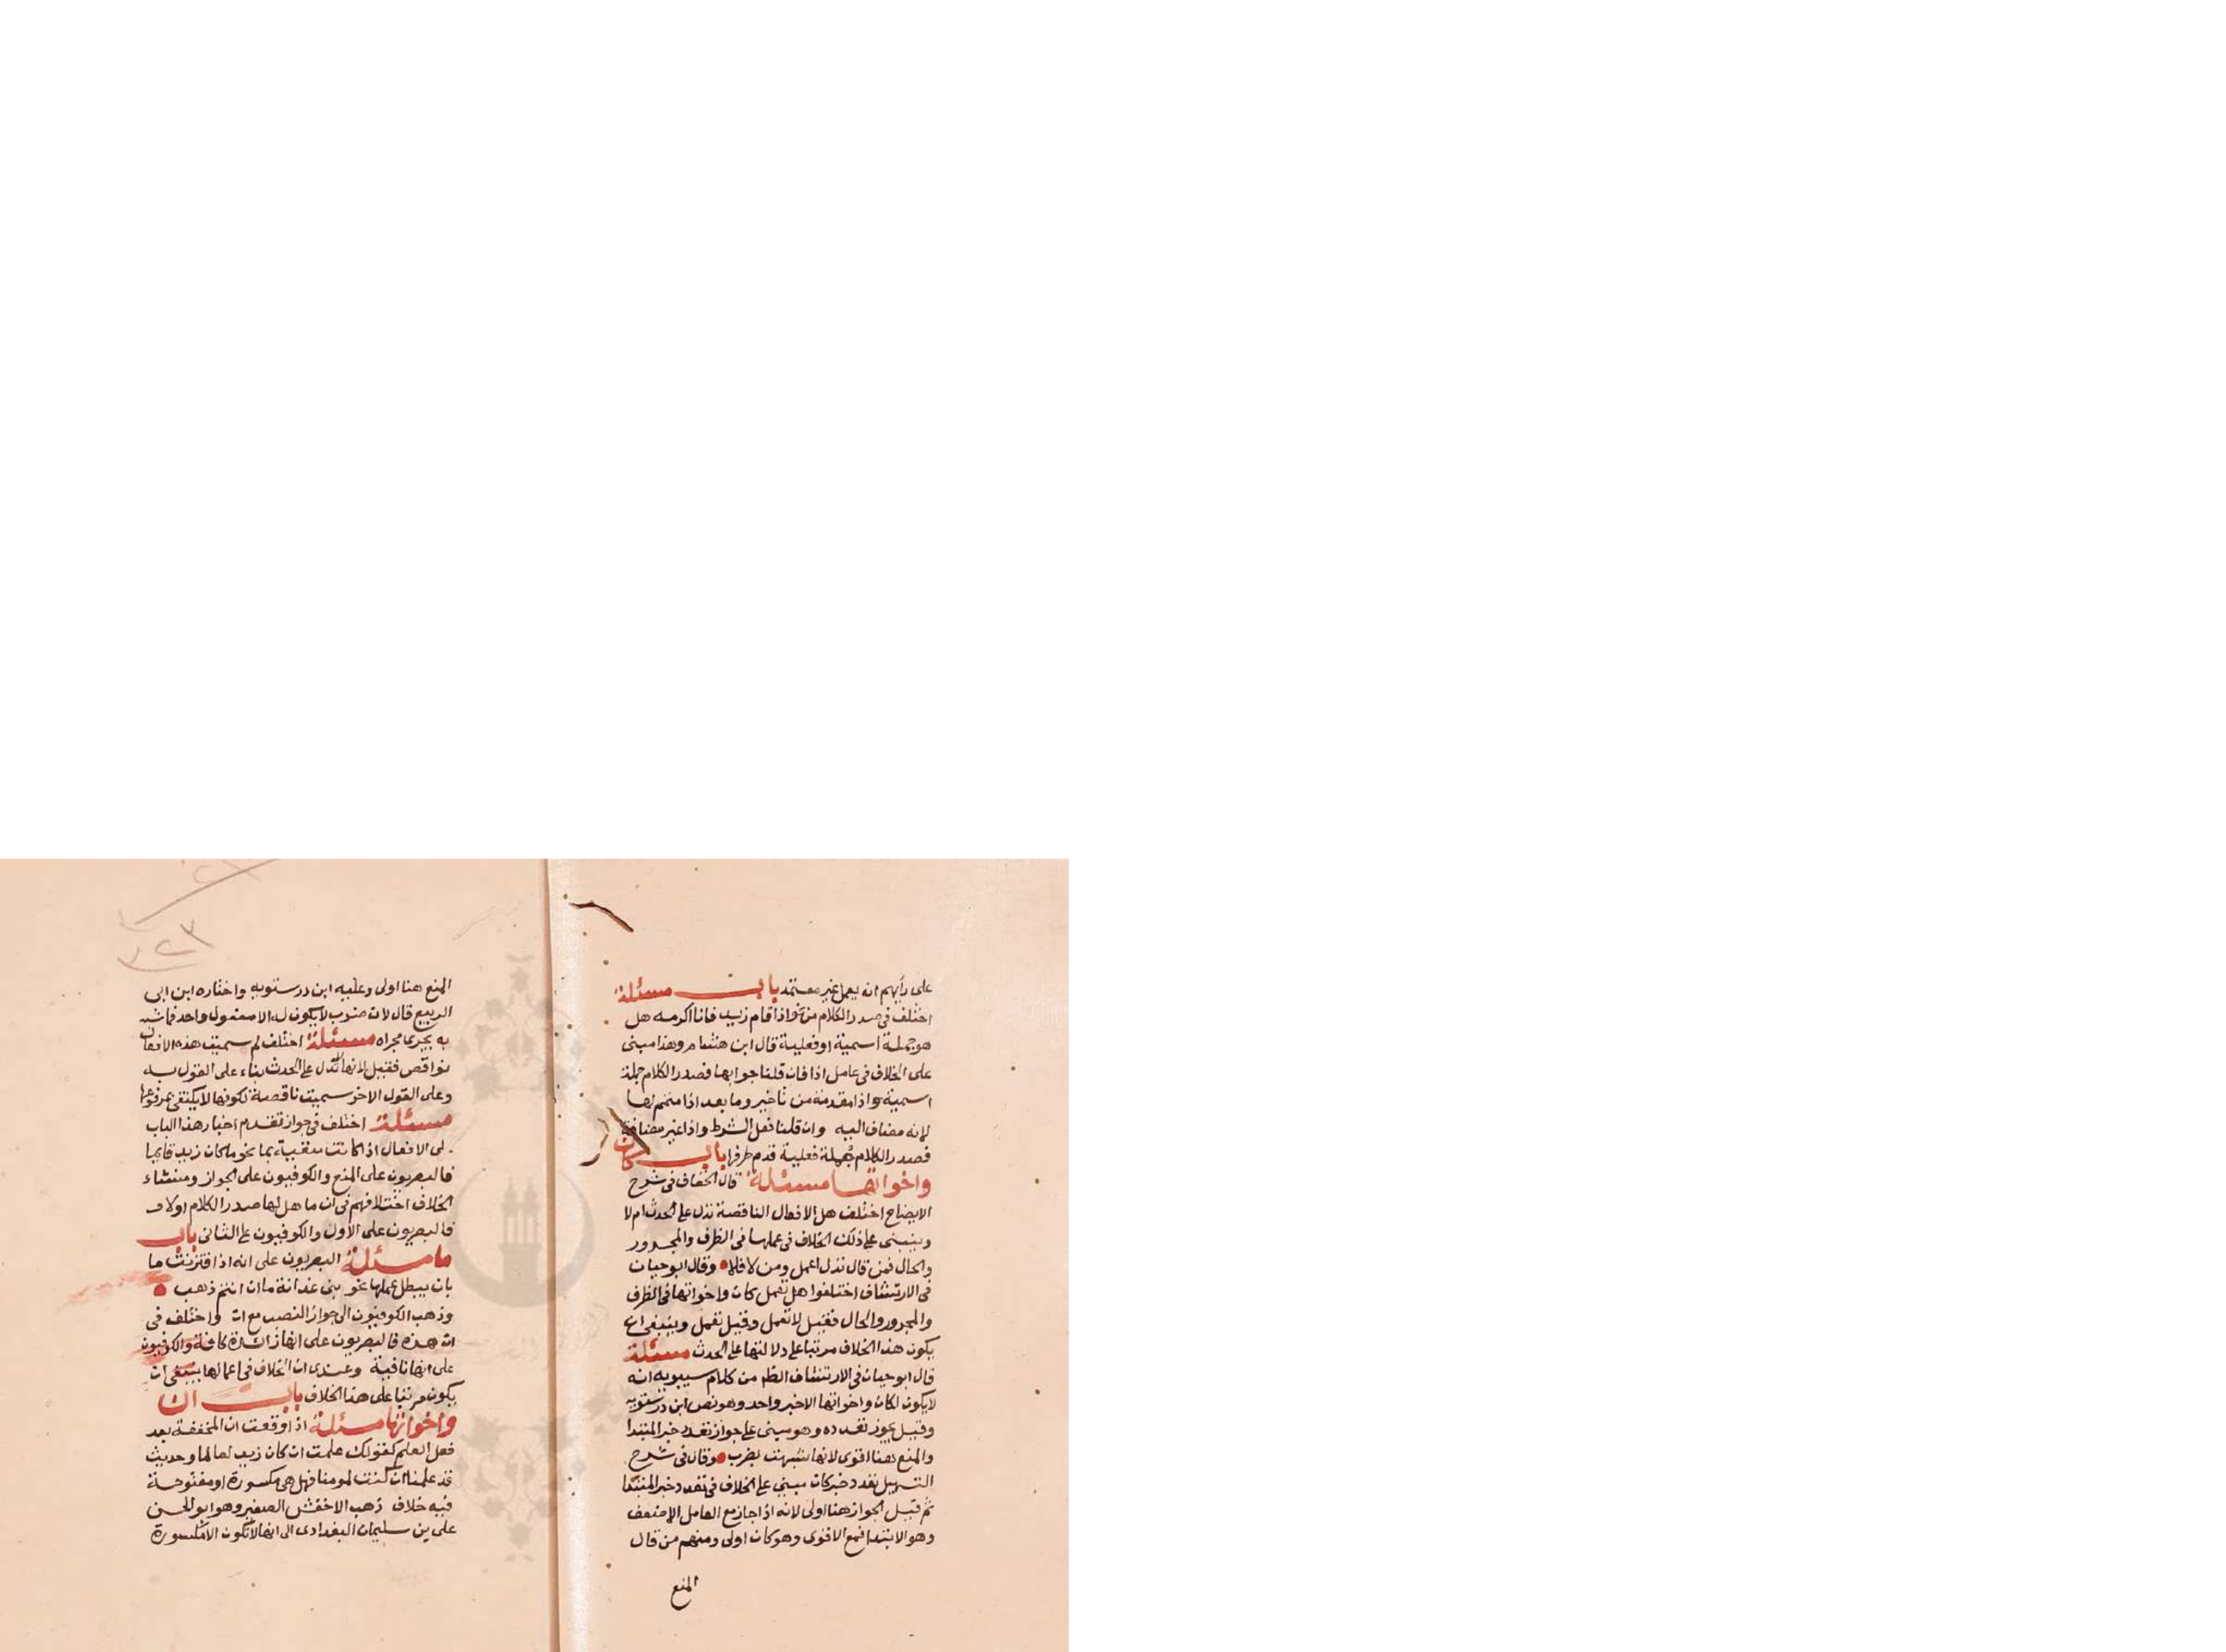 على رأيهم انه يعمل غير معتمد باب مسئلة
اختلف فى صدر الكلام من نحو اذا قام زيد فانا اكرمه هل
هو جملة اسمية او فعلية قال ابن هشام وهذا مبنى
على الخلاف فى عامل اذا فان قلنا جوابها فصدر الكلام جملة
اسمية واذا مقدمة من تاخير وما بعد اذا متمم لها
لانه مضاف اليه وان قلنا فعل الشرط واذا غير مضافة
فصدر الكلام جملة فعلية قدم ظرفها باب كان
واخواتها مسئلة قال الخفاف فى شرح
الايضاح اختلف هل الافعال الناقصة تدل على الحدث ام لا
وينبنى على ذلك الخلاف فى عملها فى الظرف والمجرور
والحال فمن قال تدل اعمل ومن لا فلا وقال ابو حيان
فى الارتشاف اختلفوا هل تعمل كان واخواتها فى الظرف
والمجرور والحال فقيل لا تعمل وقيل تعمل وينبغى ان
يكون هذا الخلاف مرتبا على دلالتها على الحدث مسئلة
قال ابو حيان فى الارتشاف الظم من كلام سيبويه انه
لا يكون لكان واخواتها الا خبر واحد وهو نص ابن درستويه
وقيل يجوز تعدده وهو مبنى على جواز تعدد خبر المبتدا
والمنع هنا اقوى لانها شبهت بضرب وقال فى شرح
التسهيل تعدد خبر كان مبنى على الخلاف فى تعدد خبر المبتدا
ثم قيل الجواز هنا اولى لانه اذا جاز مع العامل الاضعف
وهو الابتدا فمع الاقوى وهو كان اولى ومنهم من قال
المنع
٣٢٣
المنع هنا اولى وعليه ابن درستويه واختاره ابن ابى
الربيع قال لان ضرب لا يكون له الا مفعول واحد فما شبه
به يجرى مجراه مسئلة اختلف لم سميت هذه الافعال
نواقص فقيل لانها لا تدل على الحدث بناء على القول به
وعلى القول الاخر سميت ناقصة لكونها لا يكتفى بمرفوعها
مسئلة اختلف فى جواز تقدم اخبار هذا الباب
لى الافعال اذا كانت منفية بما نحو ما كان زيد قايما
فالبصريون على المنع والكوفيون على الجواز ومنشاء
الخلاف اختلافهم فى ان ما هل لها صدر الكلام اولا ف
فالبصريون على الاول والكوفيون على الثانى باب
ما مسئلة البصريون على انه اذا اقترنت ما
بان يبطل عملها نحو بنى غدانة ما ان انتم ذهب
وذهب الكوفيون الى جواز النصب مع ان واختلف فى
ان هذه فالبصريون على انها زائدة كافة والكوفيون
على انها نافية وعندى ان الخلاف فى اعمالها ينبغى ان
يكون مرتبا على هذا الخلاف باب ان
واخواتها مسئلة اذا وقعت ان المخففة بعد
فعل العلم كقولك علمت ان كان زيد لعالما وحديث
قد علمنا ان كنت لمومنا فهل هى مكسورة او مفتوحة
فيه خلاف ذهب الاخفش الصغير وهو ابو الحسن
على بن سليمان البغدادى الى انها لا تكون الا مكسورة